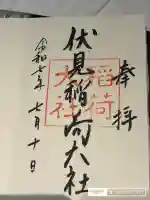 奉拝
伏見稲荷大社
稲荷
大社
令和七年七月十日